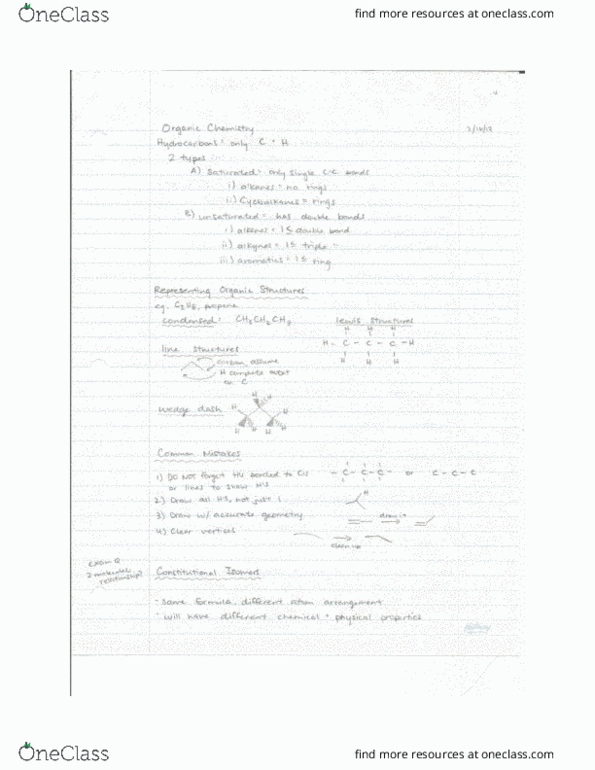 OneClass
find more resources at oneclass.com
Organic Chemistry
Hydrocarbons: only C + H
2 types
A) Saturated: only single C-C bonds
i) alkanes = no rings
ii) Cycloalkanes = rings
B) unsaturated = has double bonds
i) alkenes = 1≤ double bond
ii) alkynes = 1≤ triple "
iii) aromatics = 1≤ ring
Representing Organic Structures
eg. propane
condensed: CH3CH2CH3
lewis structures
H H H
H - C - C - C - H
H H H
line structures
carbon, assume
H complete octet
on C
wedge dash
H H H H H H
Common Mistakes
1) DO NOT forget H's bonded to C's
or lines to show H's
- C - C - C - or C - C - C
2) Draw all H's, not just 1
H
3) Draw w/ accurate geometry
draw it
4) Clear vertices
clean up
exam Q
2 molecules
relationship?
Constitutional Isomers
- Same formula, different atom arrangement
- will have different chemical + physical properties
OneClass
find more resources at oneclass.com